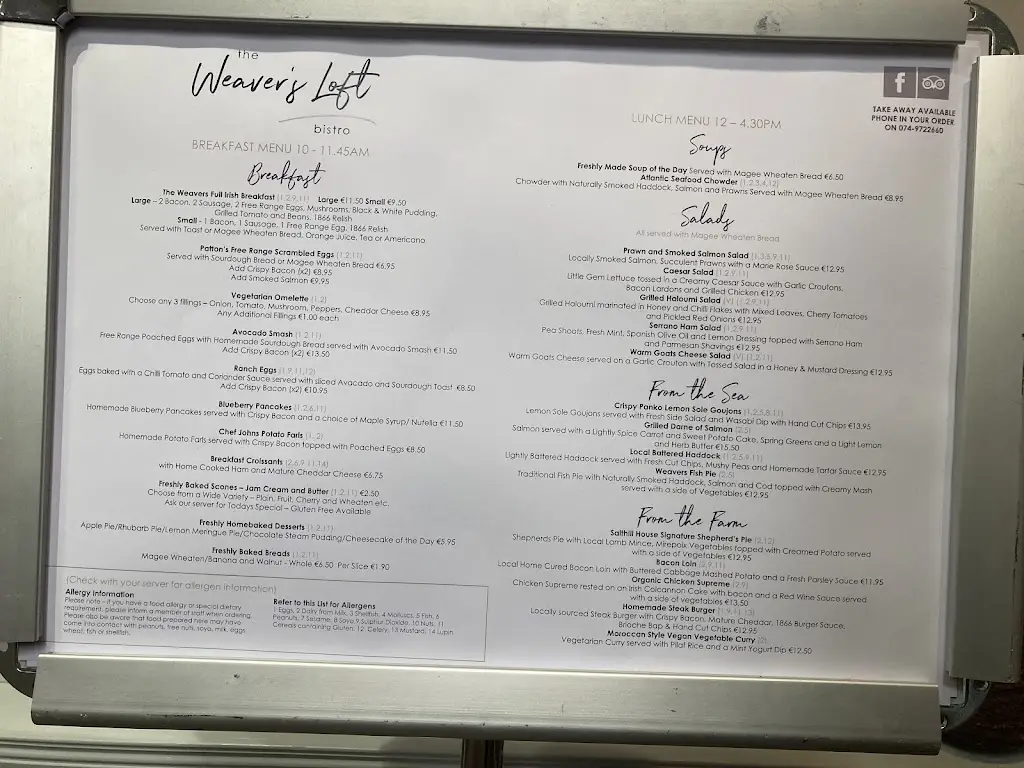 the
Weaver's Loft
bistro
BREAKFAST MENU 10 - 11.45AM
Breakfast
The Weavers Full Irish Breakfast (1,2,9,11) Large €11.50 Small €9.50
Large – 2 Bacon, 2 Sausage, 2 Free Range Eggs, Mushrooms, Black & White Pudding,
Grilled Tomato and Beans, 1866 Relish
Small - 1 Bacon, 1 Sausage, 1 Free Range Egg, 1866 Relish
Served with Toast or Magee Wheaten Bread, Orange Juice, Tea or Americano
Patton's Free Range Scrambled Eggs (1,2,11)
Served with Sourdough Bread or Magee Wheaten Bread €6.95
Add Crispy Bacon (x2) €8.95
Add Smoked Salmon €9.95
Vegetarian Omelette (1,2)
Choose any 3 fillings – Onion, Tomato, Mushroom, Peppers, Cheddar Cheese €8.95
Any Additional Fillings €1.00 each
Avocado Smash (1,2,11)
Free Range Poached Eggs with Homemade Sourdough Bread served with Avocado Smash €11.50
Add Crispy Bacon (x2) €13.50
Ranch Eggs (1,9,11,12)
Eggs baked with a Chilli Tomato and Coriander Sauce served with sliced Avacado and Sourdough Toast €8.50
Add Crispy Bacon (x2) €10.95
Blueberry Pancakes (1,2,6,11)
Homemade Blueberry Pancakes served with Crispy Bacon and a choice of Maple Syrup/ Nutella €11.50
Chef Johns Potato Farls (1,,2)
Homemade Potato Farls served with Crispy Bacon topped with Poached Eggs €8.50
Breakfast Croissants (2,6,9,11,14)
with Home Cooked Ham and Mature Cheddar Cheese €6.75
Freshly Baked Scones – Jam Cream and Butter (1,2,11) €2.50
Choose from a Wide Variety – Plain, Fruit, Cherry and Wheaten etc.
Ask our server for Todays Special – Gluten Free Available
Freshly Homebaked Desserts (1,2,11)
Apple Pie/Rhubarb Pie/Lemon Meringue Pie/Chocolate Steam Pudding/Cheesecake of the Day €5.95
Freshly Baked Breads (1,2,11)
Magee Wheaten/Banana and Walnut - Whole €6.50 Per Slice €1.90
(Check with your server for allergen information)
Allergy Information
Please note – if you have a food allergy or special dietary
requirement, please inform a member of staff when ordering
Please also be aware that food prepared here may have
come into contact with peanuts, free nuts, soya, milk, eggs,
wheat, fish or shellfish.
Refer to this List for Allergens
1 Eggs, 2 Dairy from Milk, 3 Shellfish, 4 Molluscs, 5 Fish, 6
Peanuts, 7 Sesame, 8 Soya 9 Sulphur Dioxide, 10 Nuts, 11
Cereals containing Gluten, 12, Celery, 13 Mustard, 14 Lupin
TAKE AWAY AVAILABLE
PHONE IN YOUR ORDER
ON 074-9722660
LUNCH MENU 12 – 4.30PM
Soups
Freshly Made Soup of the Day Served with Magee Wheaten Bread €6.50
Atlantic Seafood Chowder (1,2,3,4,12)
Chowder with Naturally Smoked Haddock, Salmon and Prawns Served with Magee Wheaten Bread €8.95
Salads
All served with Magee Wheaten Bread
Prawn and Smoked Salmon Salad (1,3,5,9,11)
Locally Smoked Salmon, Succulent Prawns with a Marie Rose Sauce €12.95
Caesar Salad (1,2,9,11)
Little Gem Lettuce tossed in a Creamy Caesar Sauce with Garlic Croutons,
Bacon Lardons and Grilled Chicken €12.95
Grilled Haloumi Salad (V) (1,2,9,11)
Grilled Haloumi marinated in Honey and Chilli Flakes with Mixed Leaves, Cherry Tomatoes
and Pickled Red Onions €12.95
Serrano Ham Salad (1,2,9,11)
Pea Shoots, Fresh Mint, Spanish Olive Oil and Lemon Dressing topped with Serrano Ham
and Parmesan Shavings €12.95
Warm Goats Cheese Salad (V) (1,2,11)
Warm Goats Cheese served on a Garlic Crouton with Tossed Salad in a Honey & Mustard Dressing €12.95
From the Sea
Crispy Panko Lemon Sole Goujons (1,2,5,8,11)
Lemon Sole Goujons served with Fresh Side Salad and Wasabi Dip with Hand Cut Chips €13.95
Grilled Darne of Salmon (2,5)
Salmon served with a Lightly Spice Carrot and Sweet Potato Cake, Spring Greens and a Light Lemon
and Herb Butter €15.50
Local Battered Haddock (1,2,5,9,11)
Lightly Battered Haddock served with Fresh Cut Chips, Mushy Peas and Homemade Tartar Sauce €12.95
Weavers Fish Pie (2,5)
Traditional Fish Pie with Naturally Smoked Haddock, Salmon and Cod topped with Creamy Mash
served with a side of Vegetables €12.95
From the Farm
Salthill House Signature Shepherd's Pie (2,12)
Shepherds Pie with Local Lamb Mince, Mirepoix Vegetables topped with Creamed Potato served
with a side of Vegetables €12.95
Bacon Loin (2,9,11)
Local Home Cured Bacon Loin with Buttered Cabbage Mashed Potato and a Fresh Parsley Sauce €11.95
Organic Chicken Supreme (2,9)
Chicken Supreme rested on an Irish Colcannon Cake with bacon and a Red Wine Sauce served
with a side of vegetables €13.50
Homemade Steak Burger (1,9,11,13)
Locally sourced Steak Burger with Crispy Bacon, Mature Cheddar, 1866 Burger Sauce,
Brioche Bap & Hand Cut Chips €12.95
Moroccan Style Vegan Vegetable Curry (2)
Vegetarian Curry served with Pilaf Rice and a Mint Yogurt Dip €12.50